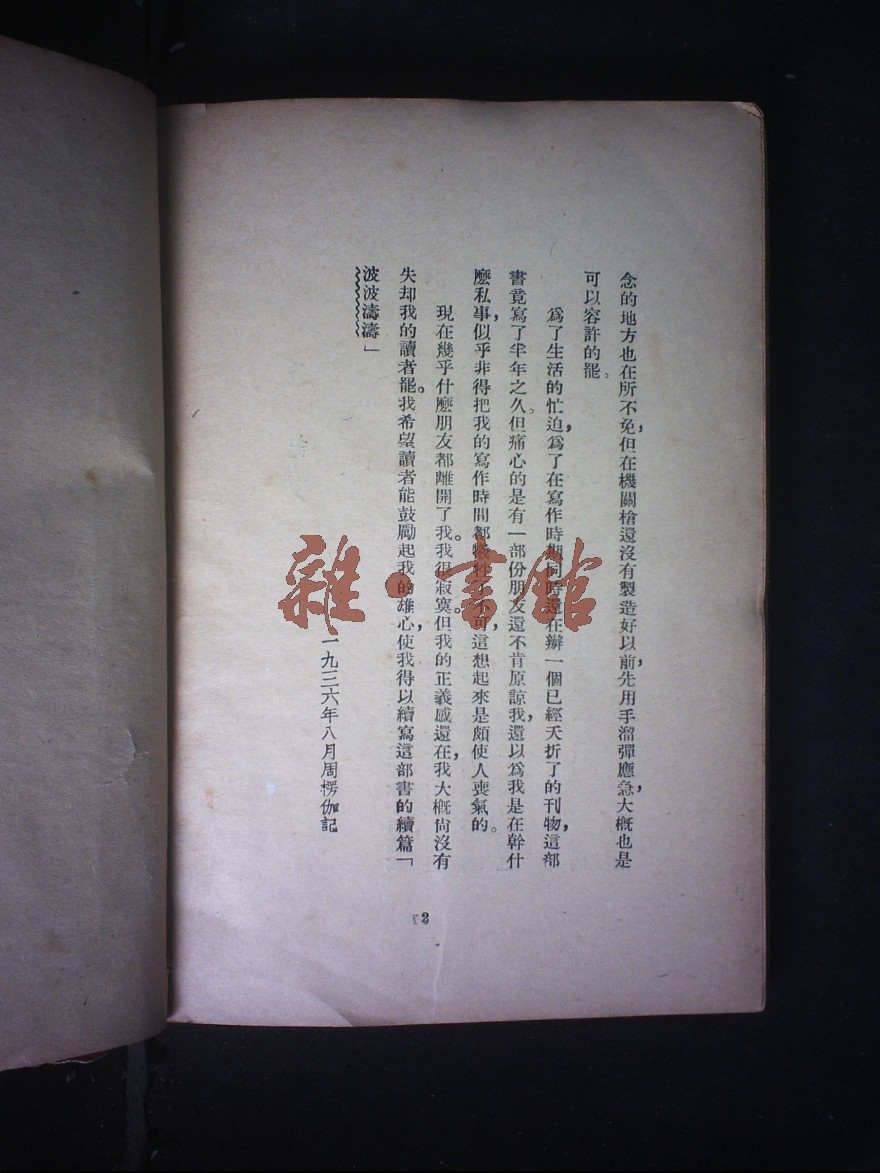 念的地方也在所不免,但在機關槍還沒有製造好以前,先用手溜彈應急,大概也是
可以容許的罷。
爲了生活的忙迫,爲了在寫作時期同時還在辦一個已經夭折了的刊物,這部
書竟寫了半年之久。但痛心的是有一部份朋友還不肯原諒我,還以爲我是在幹什
麼私事,似乎非得把我的寫作時間都犧牲了不可,這想起來是頗使人喪氣的。
現在幾乎什麼朋友都離開了我。我很寂寞。但我的正義感還在,我大概尙沒有
失却我的讀者罷。我希望讀者能鼓勵起我的雄心,使我得以續寫這部書的續篇「
波波濤濤」
一九三六年八月周楞伽記
2
雜·書館